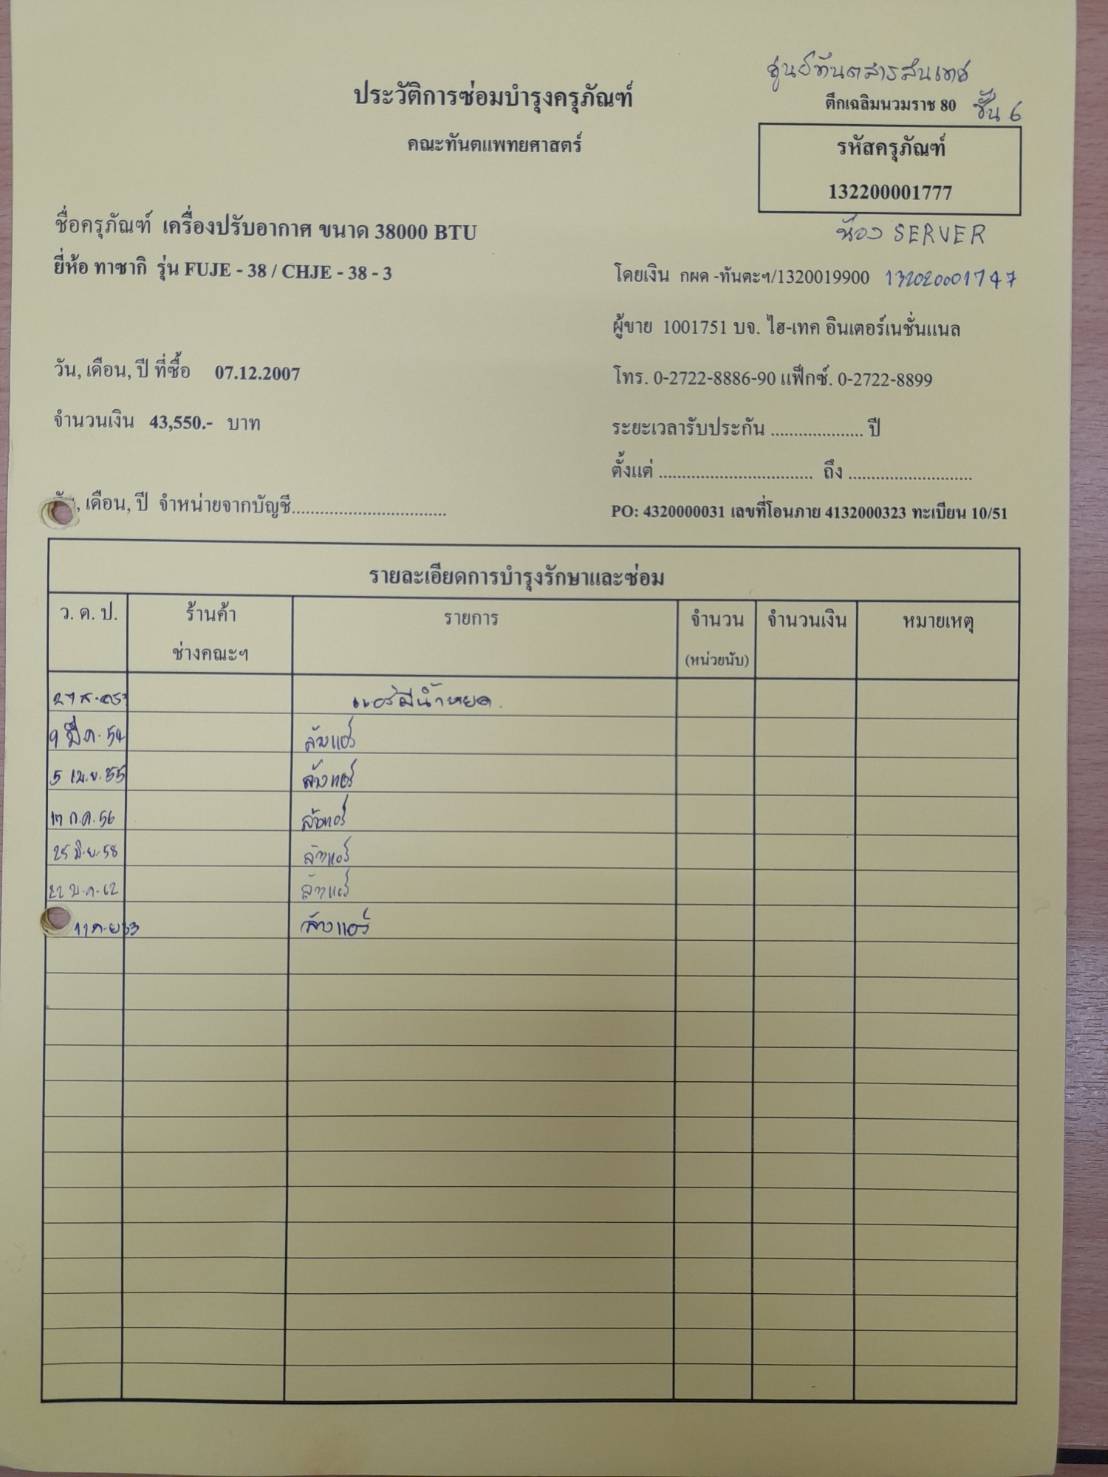 ศูนย์ทันตสารสนเทศ
ประวัติการซ่อมบำรุงครุภัณฑ์
ตึกเฉลิมนวมราช 80 ชั้น 6
คณะทันตแพทยศาสตร์
รหัสครุภัณฑ์
132200001777
ห้อง SERVER
ชื่อครุภัณฑ์ เครื่องปรับอากาศ ขนาด 38000 BTU
ยี่ห้อ ทาซากิ รุ่น FUJE - 38 / CHJE - 38 - 3
โดยเงิน กผด -ทันตะฯ/1320019900 132020001747
ผู้ขาย 1001751 บจ. ไฮ-เทค อินเตอร์เนชั่นแนล
วัน, เดือน, ปี ที่ซื้อ 07.12.2007
โทร. 0-2722-8886-90 แฟ็กซ์. 0-2722-8899
จำนวนเงิน 43,550.- บาท
ระยะเวลารับประกัน .................... ปี
ตั้งแต่ ................................. ถึง ...........................
, เดือน, ปี จำหน่ายจากบัญชี.................................
PO: 4320000031 เลขที่โอนภาย 4132000323 ทะเบียน 10/51
รายละเอียดการบำรุงรักษาและซ่อม
ว. ด. ป. ร้านค้า รายการ จำนวน จำนวนเงิน หมายเหตุ
ช่างคณะฯ (หน่วยนับ)
แอร์มีน้ำหยด
9 มี.ค. 54 ล้างแอร์
5 เม.ย. 55 ล้างแอร์
17 ก.ค. 56 ล้างแอร์
25 มิ.ย. 58 ล้างแอร์
22 ม.ค. 62 ล้างแอร์
11 ก.ย 63 ล้างแอร์